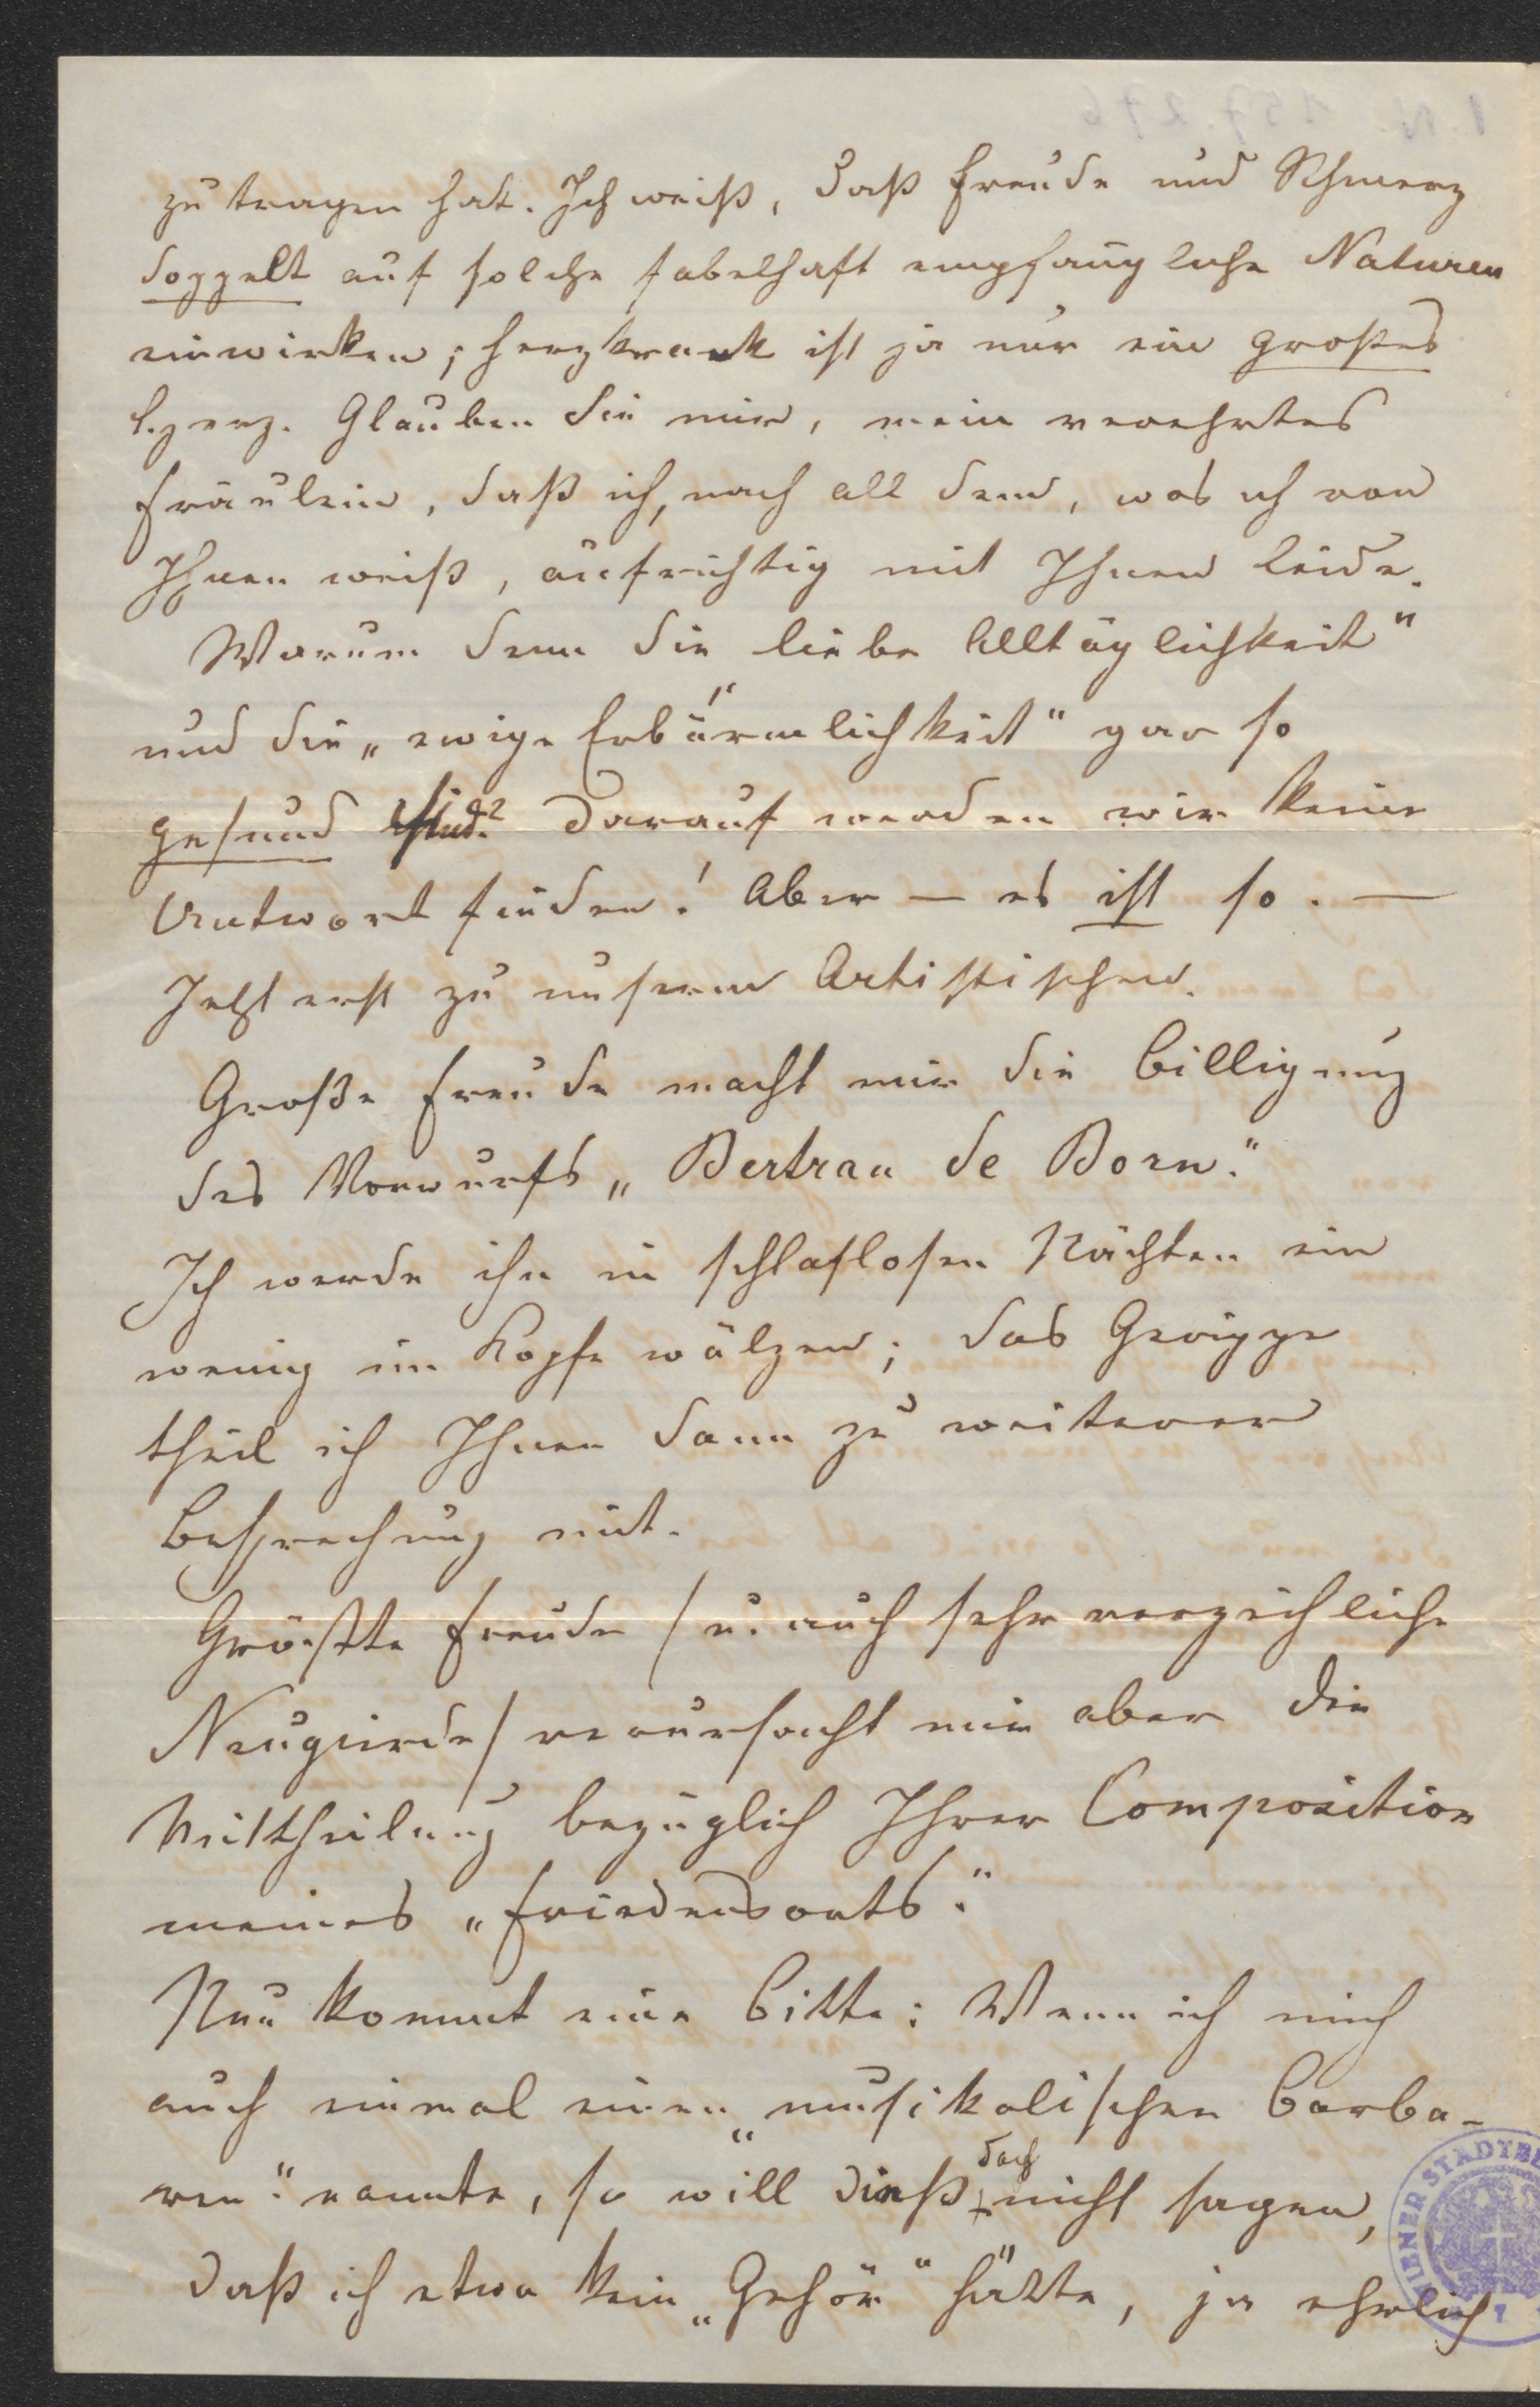 zu tragen hat. Ich weiß, daß Freude und Schmerz
doppelt auf solche fabelhaft empfängliche Naturen
einwirken; herzkrank ist ja nur ein großes
Herz. Glauben Sie mir, mein verehrtes
Fräulein, daß ich, nach all dem, was ich von
Ihnen weiß, aufrichtig mit Ihnen leide.
Warum denn die liebe Alltäglichkeit"
und die „ewige Erbärmlichkeit" gar so
gesund sind? Darauf werden wir keine
Antwort finden! Aber — es ist so. —
Jetzt erst zu unserem Artistischen.
Große Freude macht mir die Billigung
des Vorwurfs „Bertran de Born."
Ich werde ihn in schlaflosen Nächten ein
wenig im Kopfe wälzen; das Gerippe
theil ich Ihnen dann zu weiterer
Besprechung mit.
Größte Freude /u. auch sehr verzeihliche
Neugierde/ verursacht mir aber die
Mittheilung bezüglich Ihrer Composition
meines „Friedensorts."
Nun kommt eine Bitte: Wenn ich mich
auch einmal einen „musikalischen Barba-
ren" nannte, so will dieß doch nicht sagen,
daß ich etwa kein „Gehör" hätte, ja ehrlich
WIENER STADTBI
I. N. 157.276